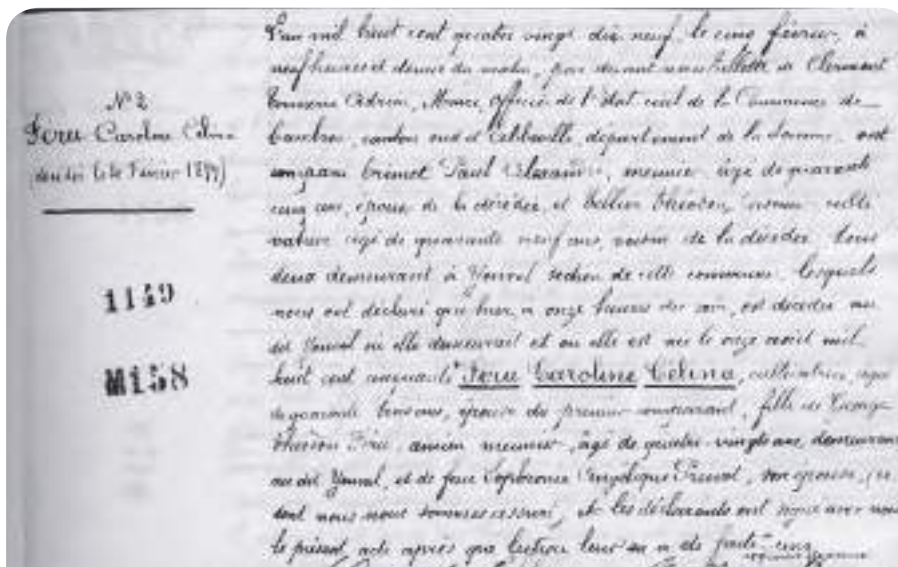 N° 2
Féru Caroline Célina
décédée le 4 Février 1899
1149
M158
L'an mil huit cent quatre vingt dix neuf, le cinq février, à
neuf heures et demie du matin, par devant nous de Clermont
Tonnerre Maire, officier de l'état civil de la Commune de
Cambron, canton sud d'Abbeville, département de la Somme, ont
comparu Paul Alexandre, meunier, âgé de quarante
cinq ans, époux de la décédée, et
âgé de quarante neuf ans, voisin de la décédée, tous
deux demeurant à Yonval section de cette commune, lesquels
nous ont déclaré que hier, à onze heures du soir, est décédée au
dit Yonval où elle demeurait et où elle est née le onze août mil
huit cent cinquante Féru Caroline Célina, cultivatrice, âgée
de quarante ans, épouse du premier comparant, fille de George
Féru, ancien meunier, âgé de quatre-vingts ans, demeurant
au dit Yonval, et de feue Sophronie Angélique son épouse,
dont nous nous sommes assuré, et les déclarants ont signé avec nous
le présent acte après que lecture leur en a été faite